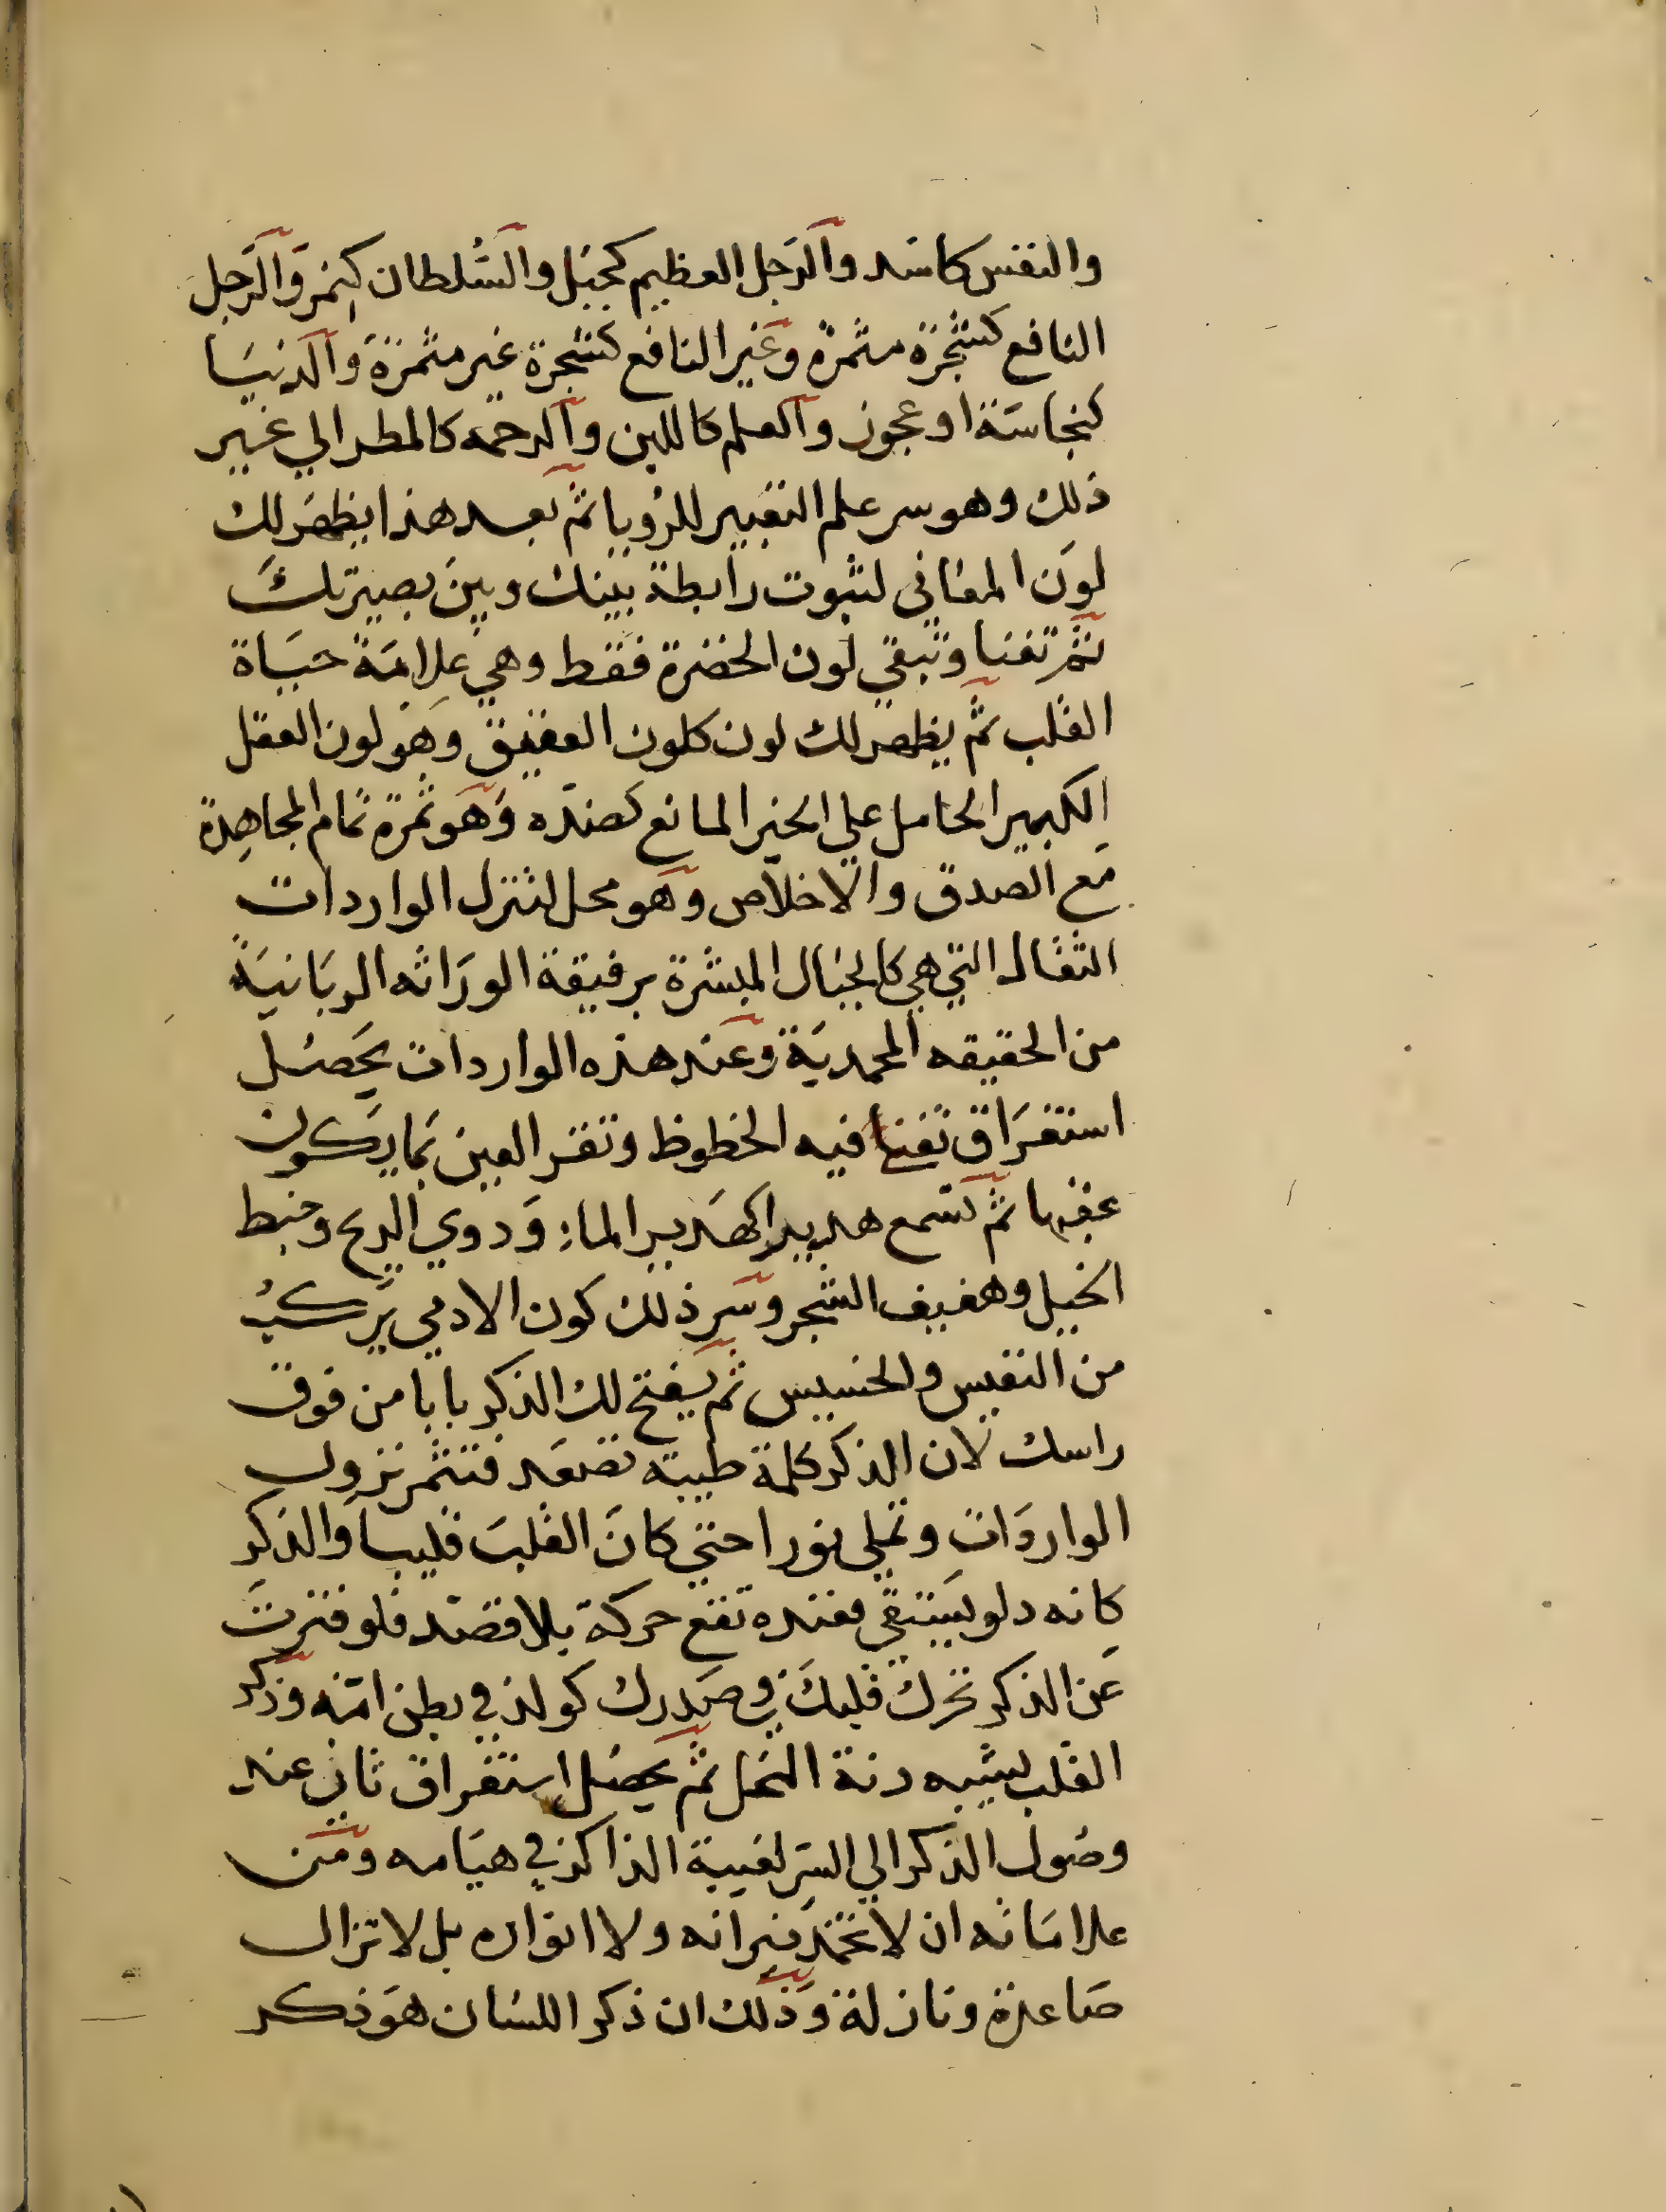 والنفس كاسد والرجل العظيم كجبل والسلطان كنمر والرجل
النافع كشجرة مثمرة وغير النافع كشجرة غير مثمرة والدنيا
كنجاسة او عجوز والعلم كاللبن والرحمه كالمطر الي غير
ذلك وهو سر علم التعبير للرويا ثم بعد هذا يظهر لك
لون المعاني لثبوت رابطة بينك وبين بصيرتك
ثم تفنا وتبقي لون الخضرة فقط وهي علامة حياة
القلب ثم يظهر لك لون كلون العقيق وهو لون العقل
الكبير الحامل علي الخير المانع كضده وهو ثمرة تمام المجاهدة
مع الصدق والاخلاص وهو محل لتنزل الواردات
الثقال التي هي كالجبال المبشرة برقيقة الوراثه الربانية
من الحقيقه المحمدية وعند هذه الواردات يحصل
استغراق تفنا فيه الحظوظ وتقر العين بما يكون
عقبها ثم تسمع هديرا كهدير الماء ودوي الريح وخبط
الخيل وهفيف الشجر وسر ذلك كون الادمي يركب
من النفيس والخسيس ثم يفتح لك الذكر بابا من فوق
راسك لان الذكر كلمة طيبة تصعد فتثمر نزول
الواردات وتملي نورا حتي كان القلب قليب والذكر
كانه دلو يستقي فعنده تقع حركة بلا قصد فلو فترت
عن الذكر تحرك قلبك في صدرك كولد في بطن امه وذكر
القلب يشبه رنة النحل ثم يحصل استغراق ثان عند
وصول الذكر الي السر لغيبة الذاكر في هيامه ومن
علاماته ان لا تخمد نيرانه ولا انواره بل لا تزال
صاعدة ونازلة وذلك ان ذكر اللسان هو ذكر